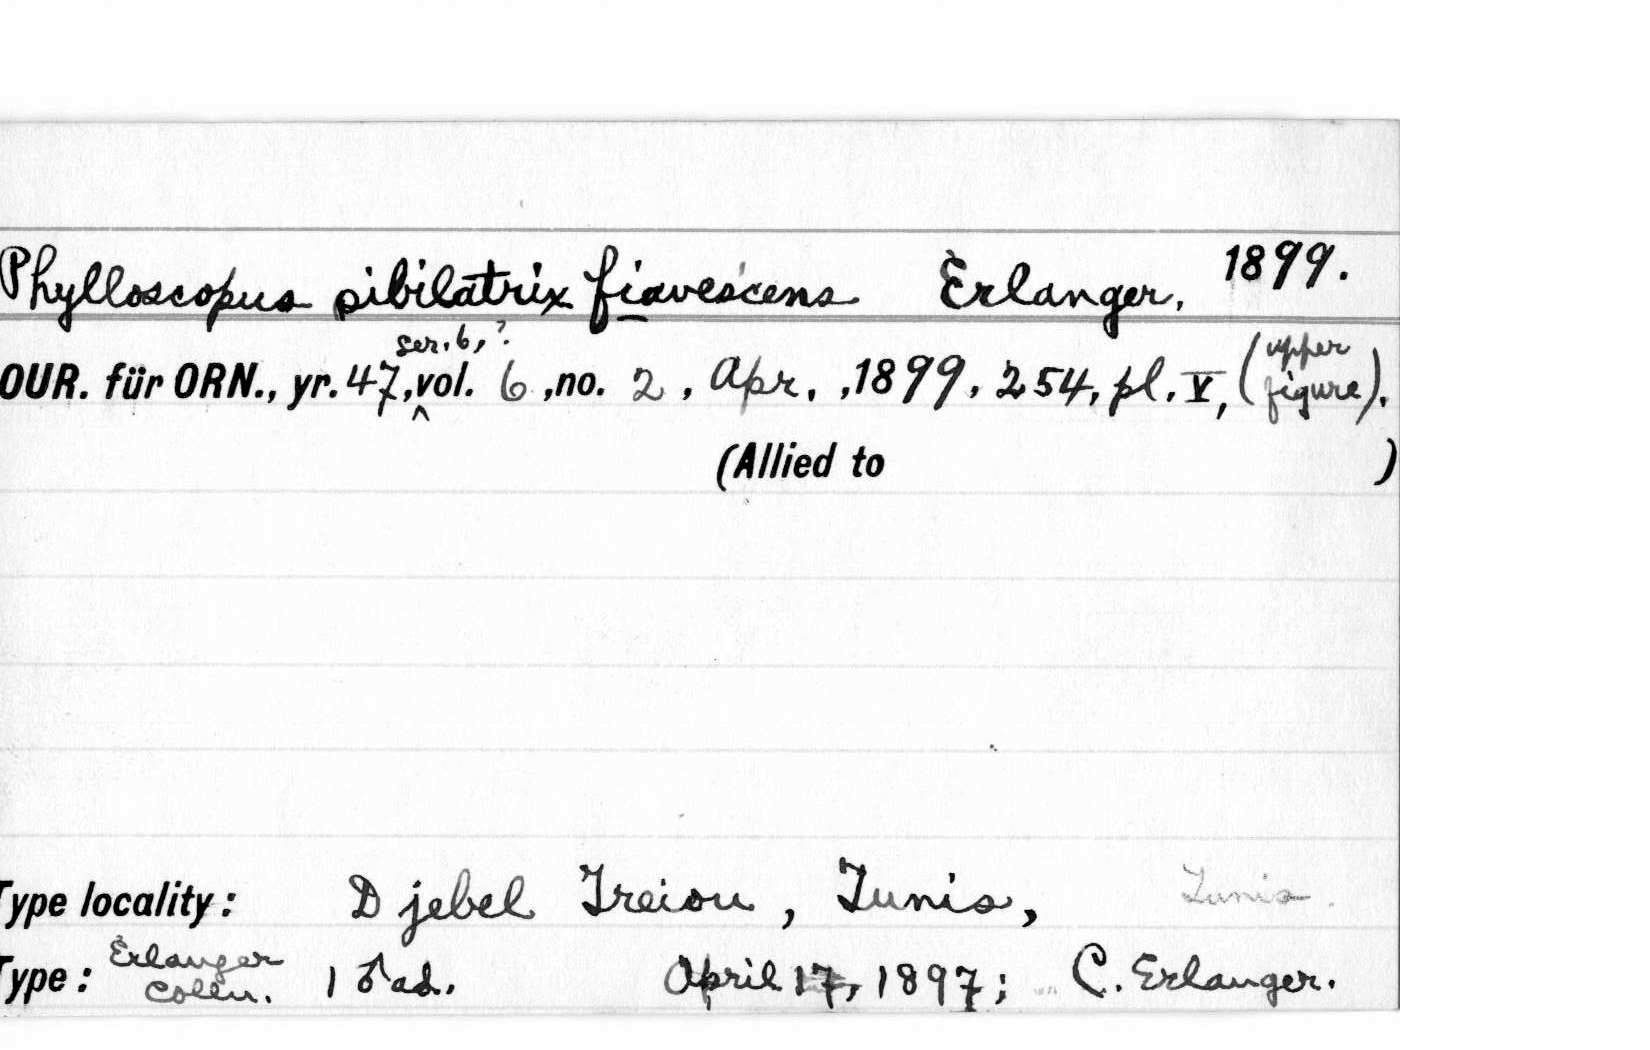 Phylloscopus sibilatrix flavescens Erlanger, 1899.
ser. 6, ?
OUR. für ORN., yr. 47, vol. 6, no. 2, Apr., 1899, 254, pl. V, (upper figure).
(Allied to )
Type locality: Djebel Freiou, Tunis, Tunis.
Type: Erlanger Colln. 1 ♂ ad. April 17, 1897; C. Erlanger.